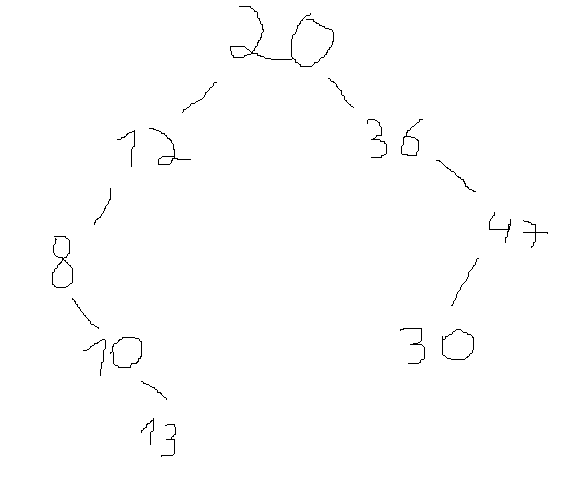 20
12 36
47
8
10 30
13